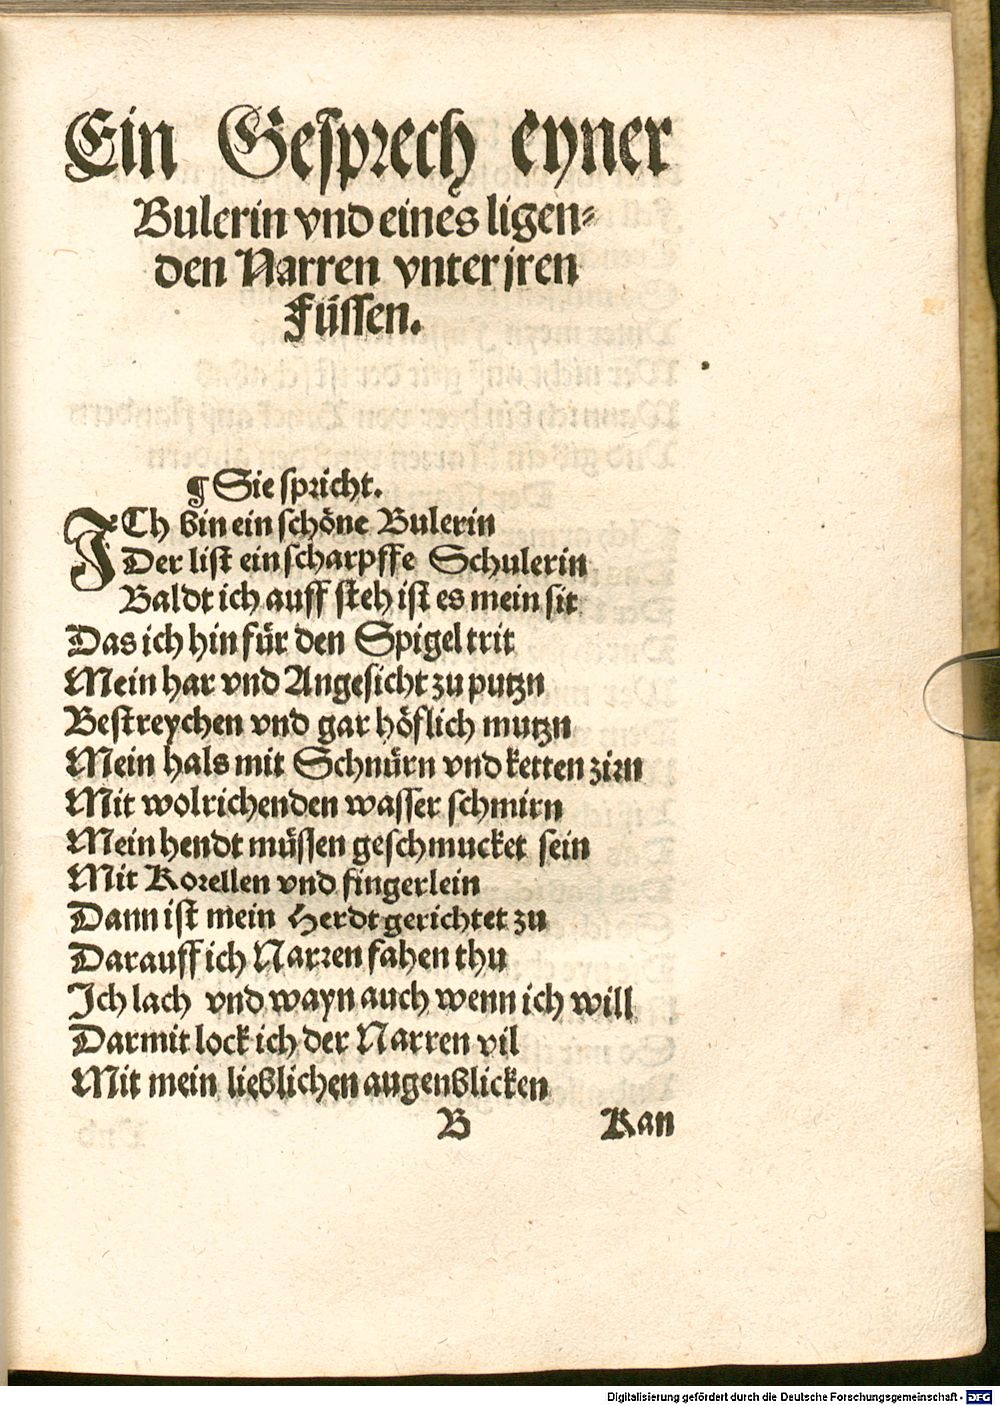 Ein Gesprech eyner
Bulerin vnd eines ligen⸗
den Narren vnter jren
Füssen.
¶ Sie spricht.
ICh bin ein schöne Bulerin
Der list ein scharpffe Schulerin
Baldt ich auff steh ist es mein sit
Das ich hin für den Spigel trit
Mein har vnd Angesicht zu putzn
Bestreychen vnd gar höflich mutzn
Mein hals mit Schnürn vnd ketten zirn
Mit wolrichenden wasser schmirn
Mein hendt müssen geschmucket sein
Mit Korellen vnd fingerlein
Dann ist mein Herdt gerichtet zu
Darauff ich Narren fahen thu
Ich lach vnd wayn auch wenn ich will
Darmit lock ich der Narren vil
Mit mein lieblichen augenblicken
B Kan
Digitalisierung gefördert durch die Deutsche Forschungsgemeinschaft - DFG